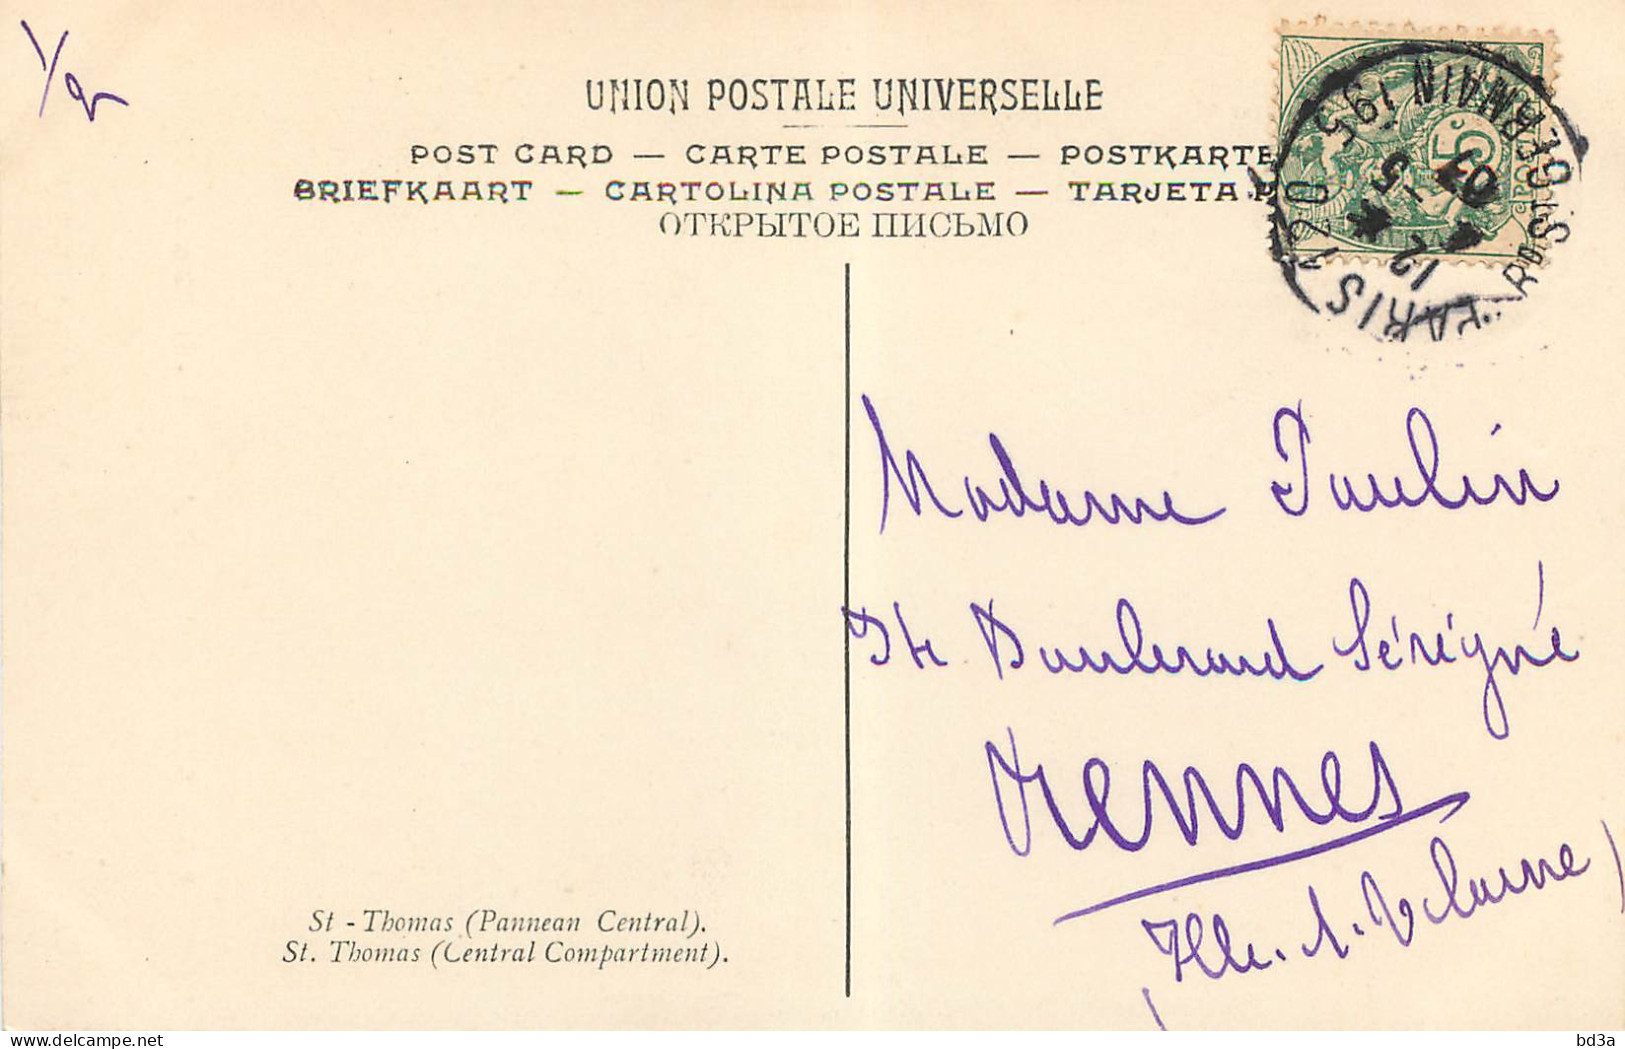 UNION POSTALE UNIVERSELLE
POST CARD — CARTE POSTALE — POSTKARTE
BRIEFKAART — CARTOLINA POSTALE — TARJETA P
ОТКРЫТОЕ ПИСЬМО
5c
PARIS 120
Bd ST GERMAIN 195
12
* 4 - 5 *
07
Madame Paulin
Boulevard Sévigné
Rennes
(Ille-&-Vilaine)
St - Thomas (Pannean Central).
St. Thomas (Central Compartment).
bd3a
delcampe.net